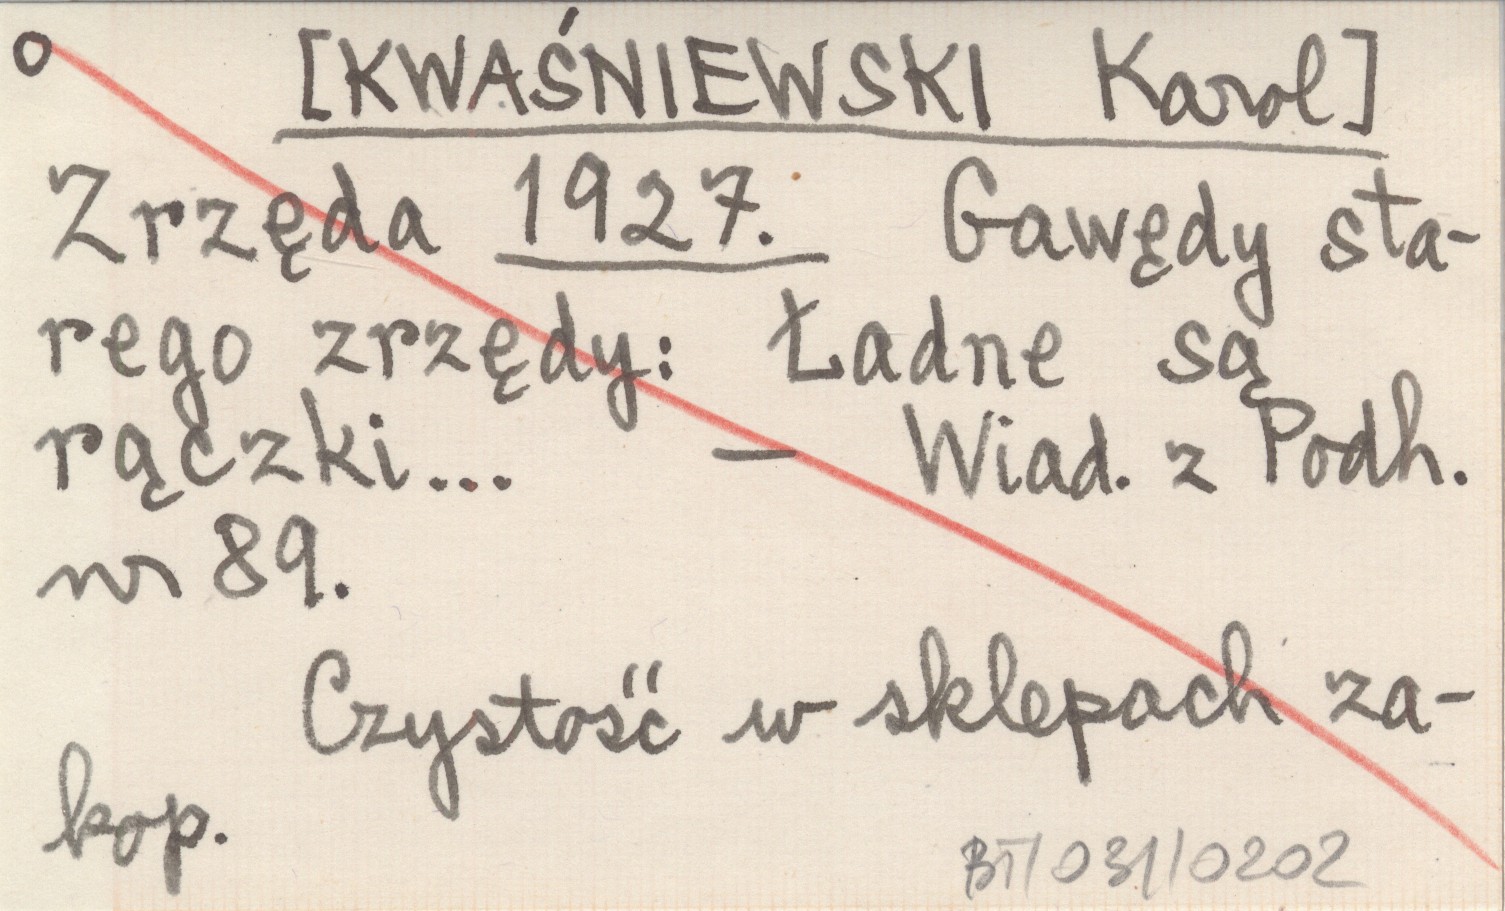 o [KWAŚNIEWSKI Karol]
Zrzęda 1927. Gawędy sta-
rego zrzędy: Ładne są
rączki... — Wiad. z Podh.
nr 89.
Czystość w sklepach za-
kop.
BT/031/0202